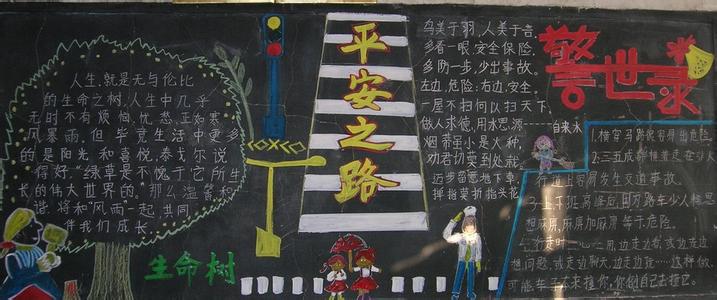 人生,就是无与伦比
的生命之树,人生中几乎
无时不有烦恼、忧愁,正如寒
风暴雨。但毕竟生活中更多
的是阳光和喜悦。泰戈尔说
得好:“绿草是不愧于它所生
长的伟大世界的。”那么温馨和
谐,将和“风雨”一起,共同
伴我们成长。
生命树
平安之路
鸟美于羽,人美于言。
多看一眼,安全保险。
多防一步,少出事故。
左边,危险;右边,安全。
一屋不扫何以扫天下
做人求德,用水思源——自来水
烟蒂虽小是火种,
劝君切莫到处栽。
迈步留意地下草,
掉指莫折指头花
警世录
1.横穿马路很容易出危险。
2.三五成群横着走在少人
行道上容易发生交通事故。
3.上下班高峰后,因万路车少人稀思
想麻痹,麻痹加麻痹等于危险。
4.走路时一心二用,边走边看或边走边
想问题,或走边聊天,边走边玩……这样做
可能车子不来撞你,你倒自己去撞它。